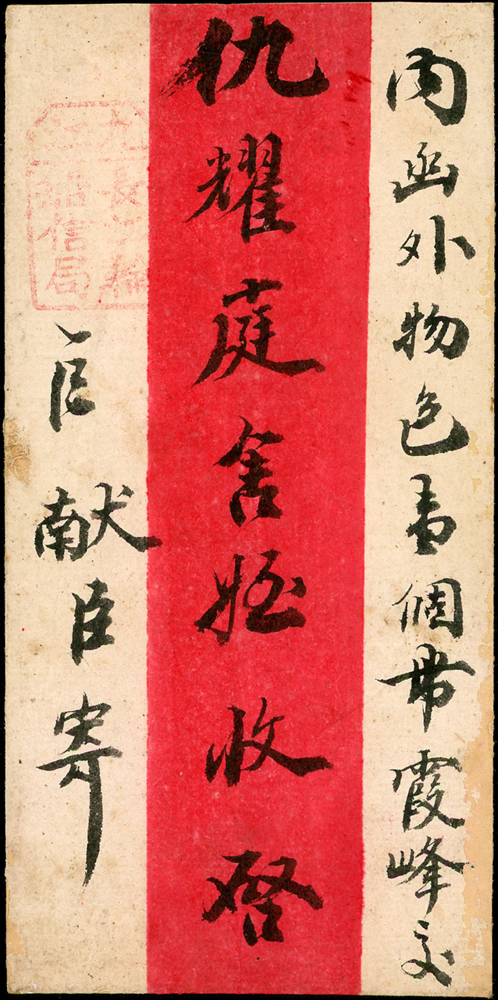 內函外物色壹個帶霞峰交
仇耀庭舍姪收啓
獻臣寄
信局